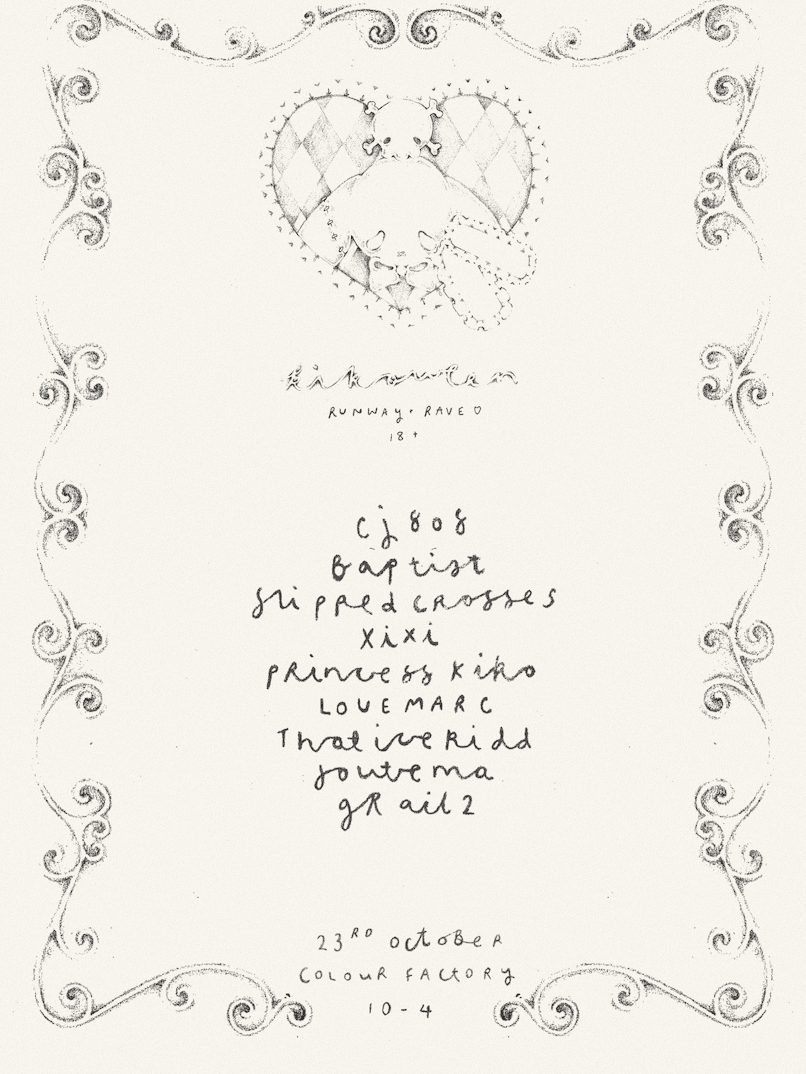 RUNWAY + RAVE ♡
18+
cj808
Baptist
slipped crosses
xixi
princess kiko
LOVEMARC
Thativekidd
joutema
gRail2
23RD october
COLOUR FACTORY
10-4